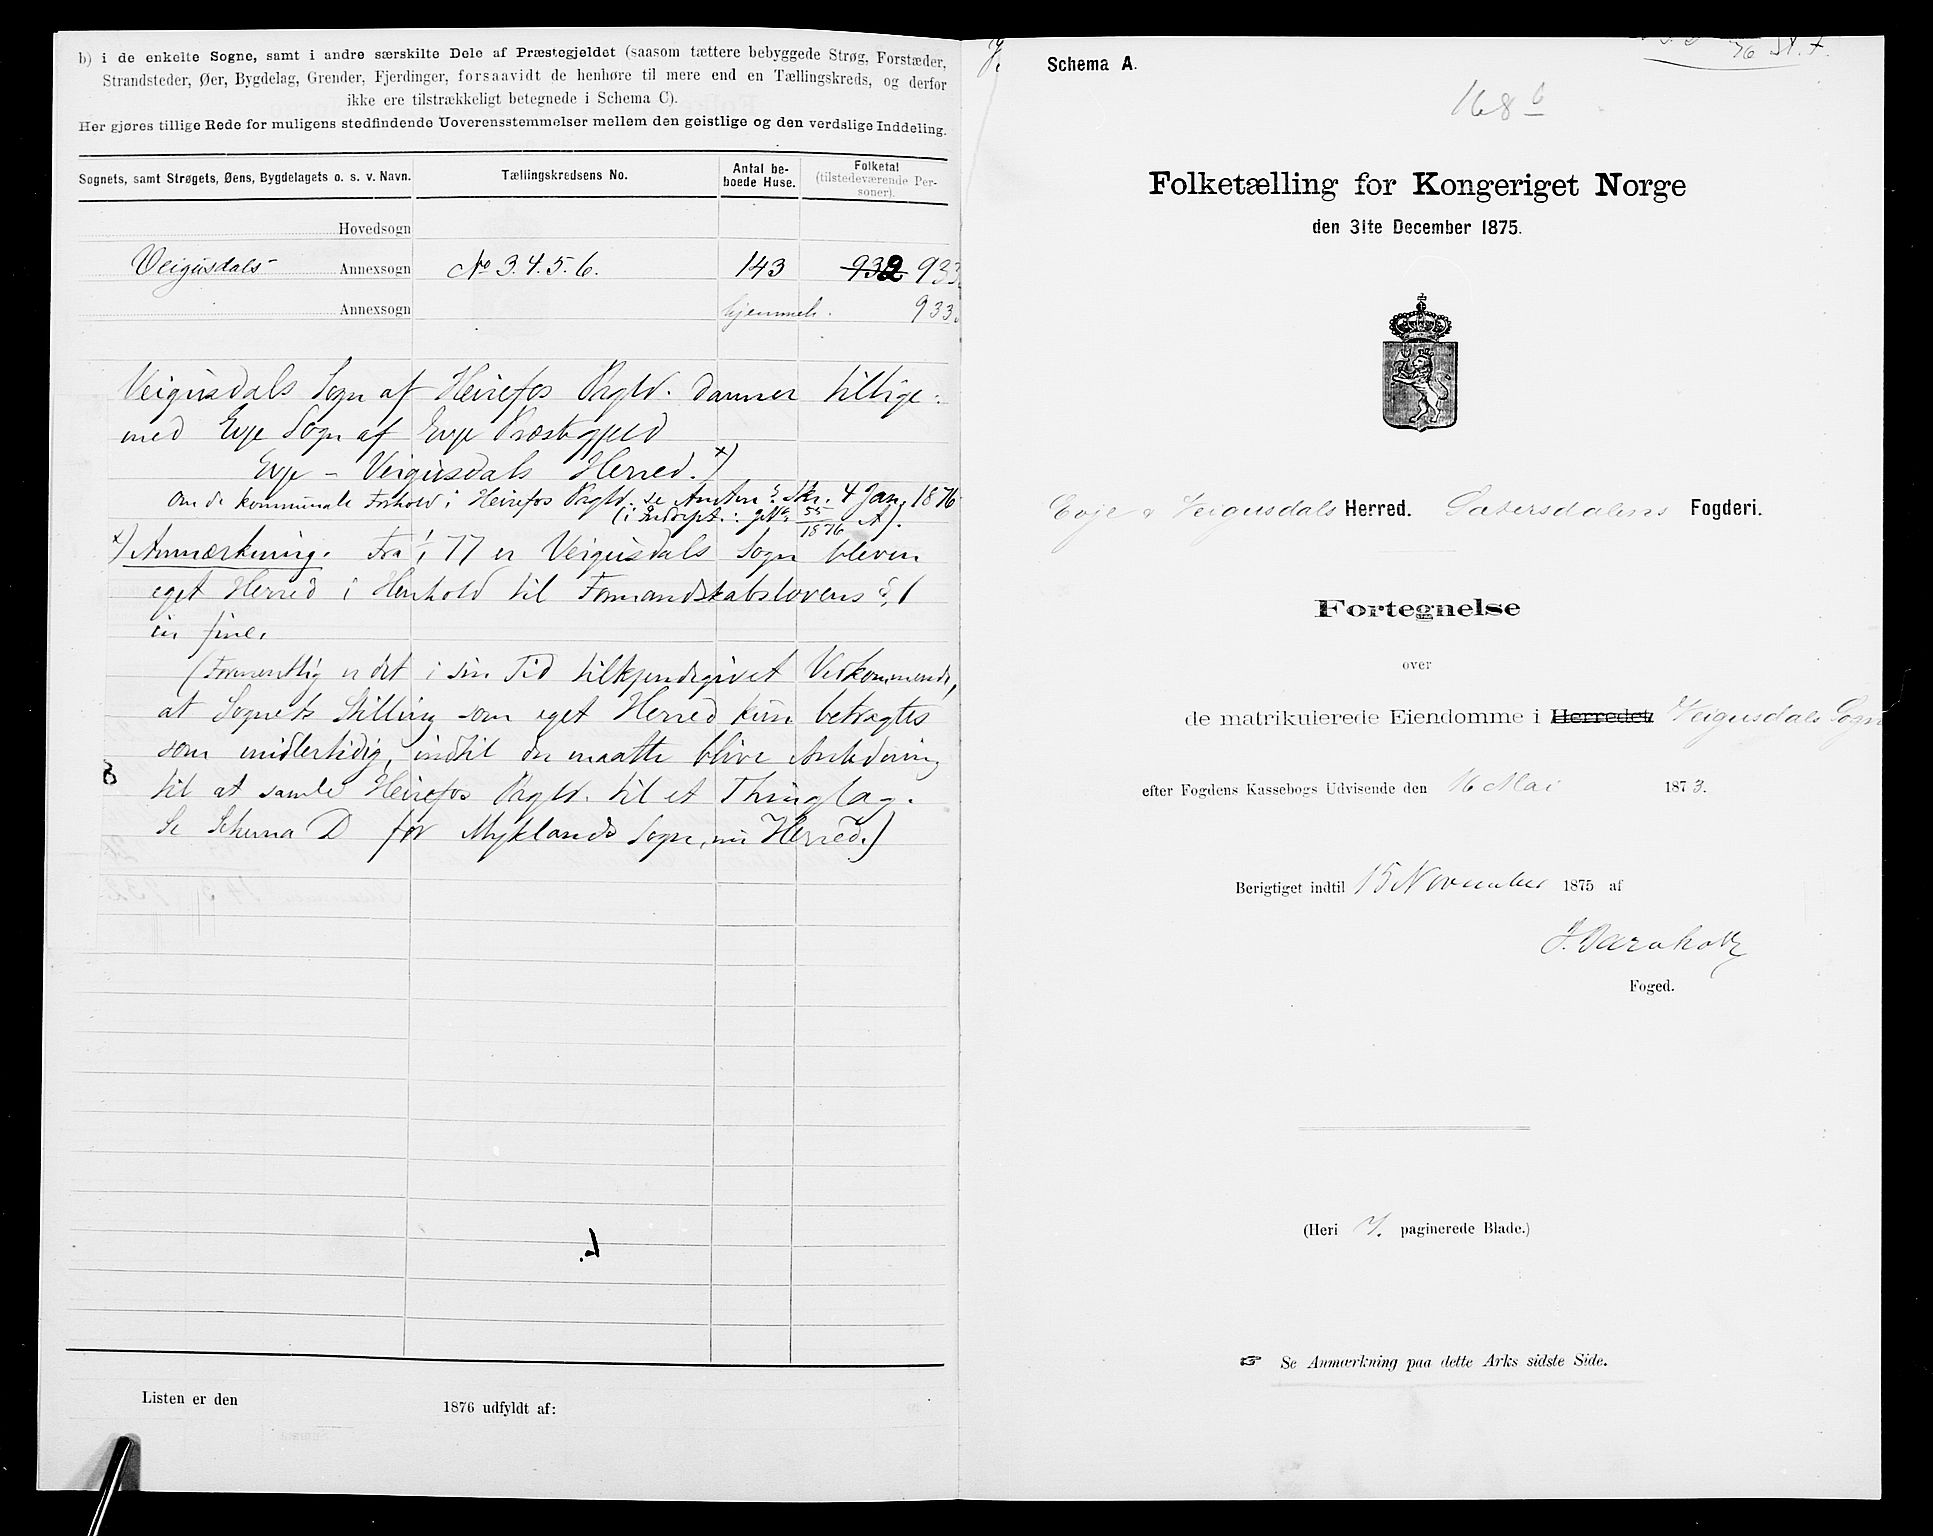 b) i de enkelte Sogne, samt i andre særskilte Dele af Præstegjeldet (saasom tættere bebyggede Strøg, Forstæder,
Strandsteder, Øer, Bygdelag, Grender, Fjerdinger, forsaavidt de henhøre til mere end en Tællingskreds, og derfor
ikke ere tilstrækkeligt betegnede i Schema C).
Her gjøres tillige Rede for muligens stedfindende Uoverensstemmelser mellem den geistlige og den verdslige Inddeling.
Sognets, samt Strøgets, Øens, Bygdelagets o. s. v. Navn. Tællingskredsens No. Antal beboede Huse. Folketal (tilstedeværende Personer).
Hovedsogn
Veigusdals Annexsogn No 3. 4. 5. 6. 143 932 933
Annexsogn hjemmeh. 933
Veigusdals Sogn af Heirefos Prgld. danner tillige-
med Evje Sogn af Evje Præstegjeld
Evje - Veigusdals Herred. x)
Om de kommunale Forhold i Heirefos Prgld. se Amtm.s Skr. 4 Jan. 1876
(i Indcpt. : 55/1876 A).
x) Anmærkning. Fra 1/1 77 er Veigusdals Sogn bleven
eget Herred i Henhold til Formandskabslovens § 1
in fine.
(Formentlig er det i sin Tid tilkjendegivet Vedkommende,
at Sognets Stilling som eget Herred kun betragtes
som midlertidig, indtil der maatte blive Anledning
til at samle Heirefos Prgld. til et Thinglag.
Se Schema D for Myklands Sogn, nu Herred.)
Listen er den 1876 udfyldt af:
Schema A.
168 b
Folketælling for Kongeriget Norge
den 31te December 1875.
Evje & Veigusdals Herred. Sætersdalens Fogderi.
Fortegnelse
over
de matrikulerede Eiendomme i Herredet Veigusdals Sogn
efter Fogdens Kassebogs Udvisende den 16 Mai 1873.
Berigtiget indtil 15 November 1875 af
J. Barnholdt
Foged.
(Heri 7. paginerede Blade.)
☞ Se Anmærkning paa dette Arks sidste Side.